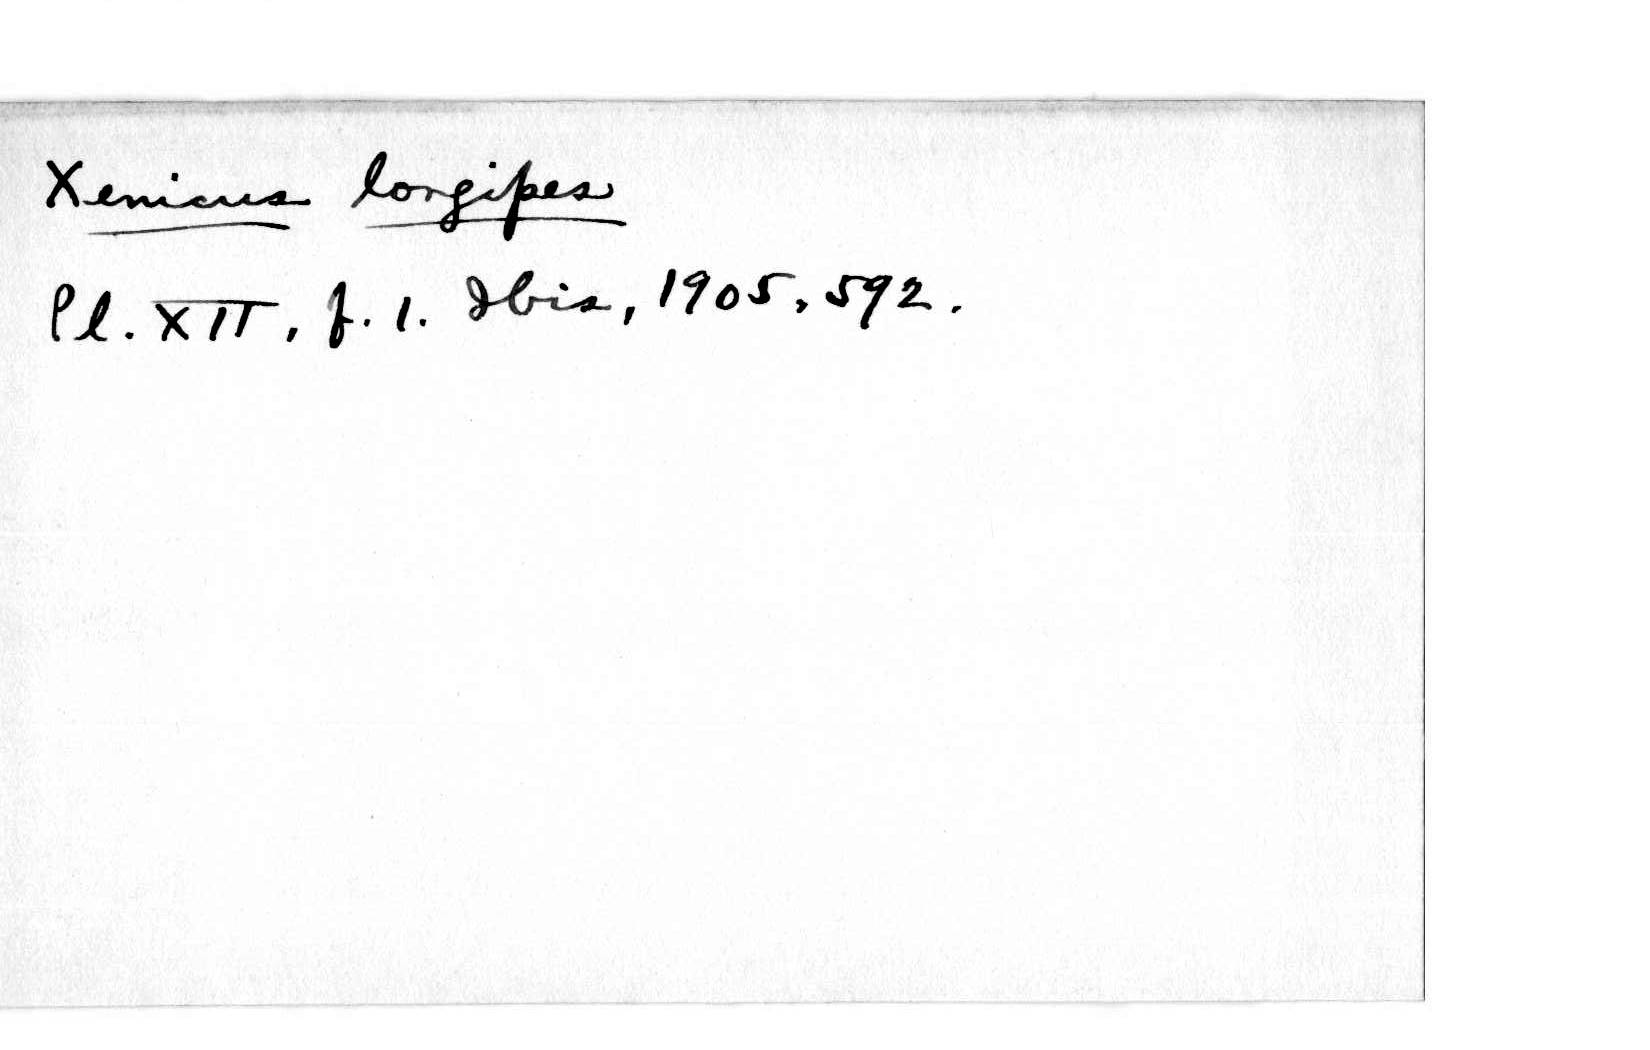 Xenicus longipes
Pl. XII, f. 1. Ibis, 1905, 592.